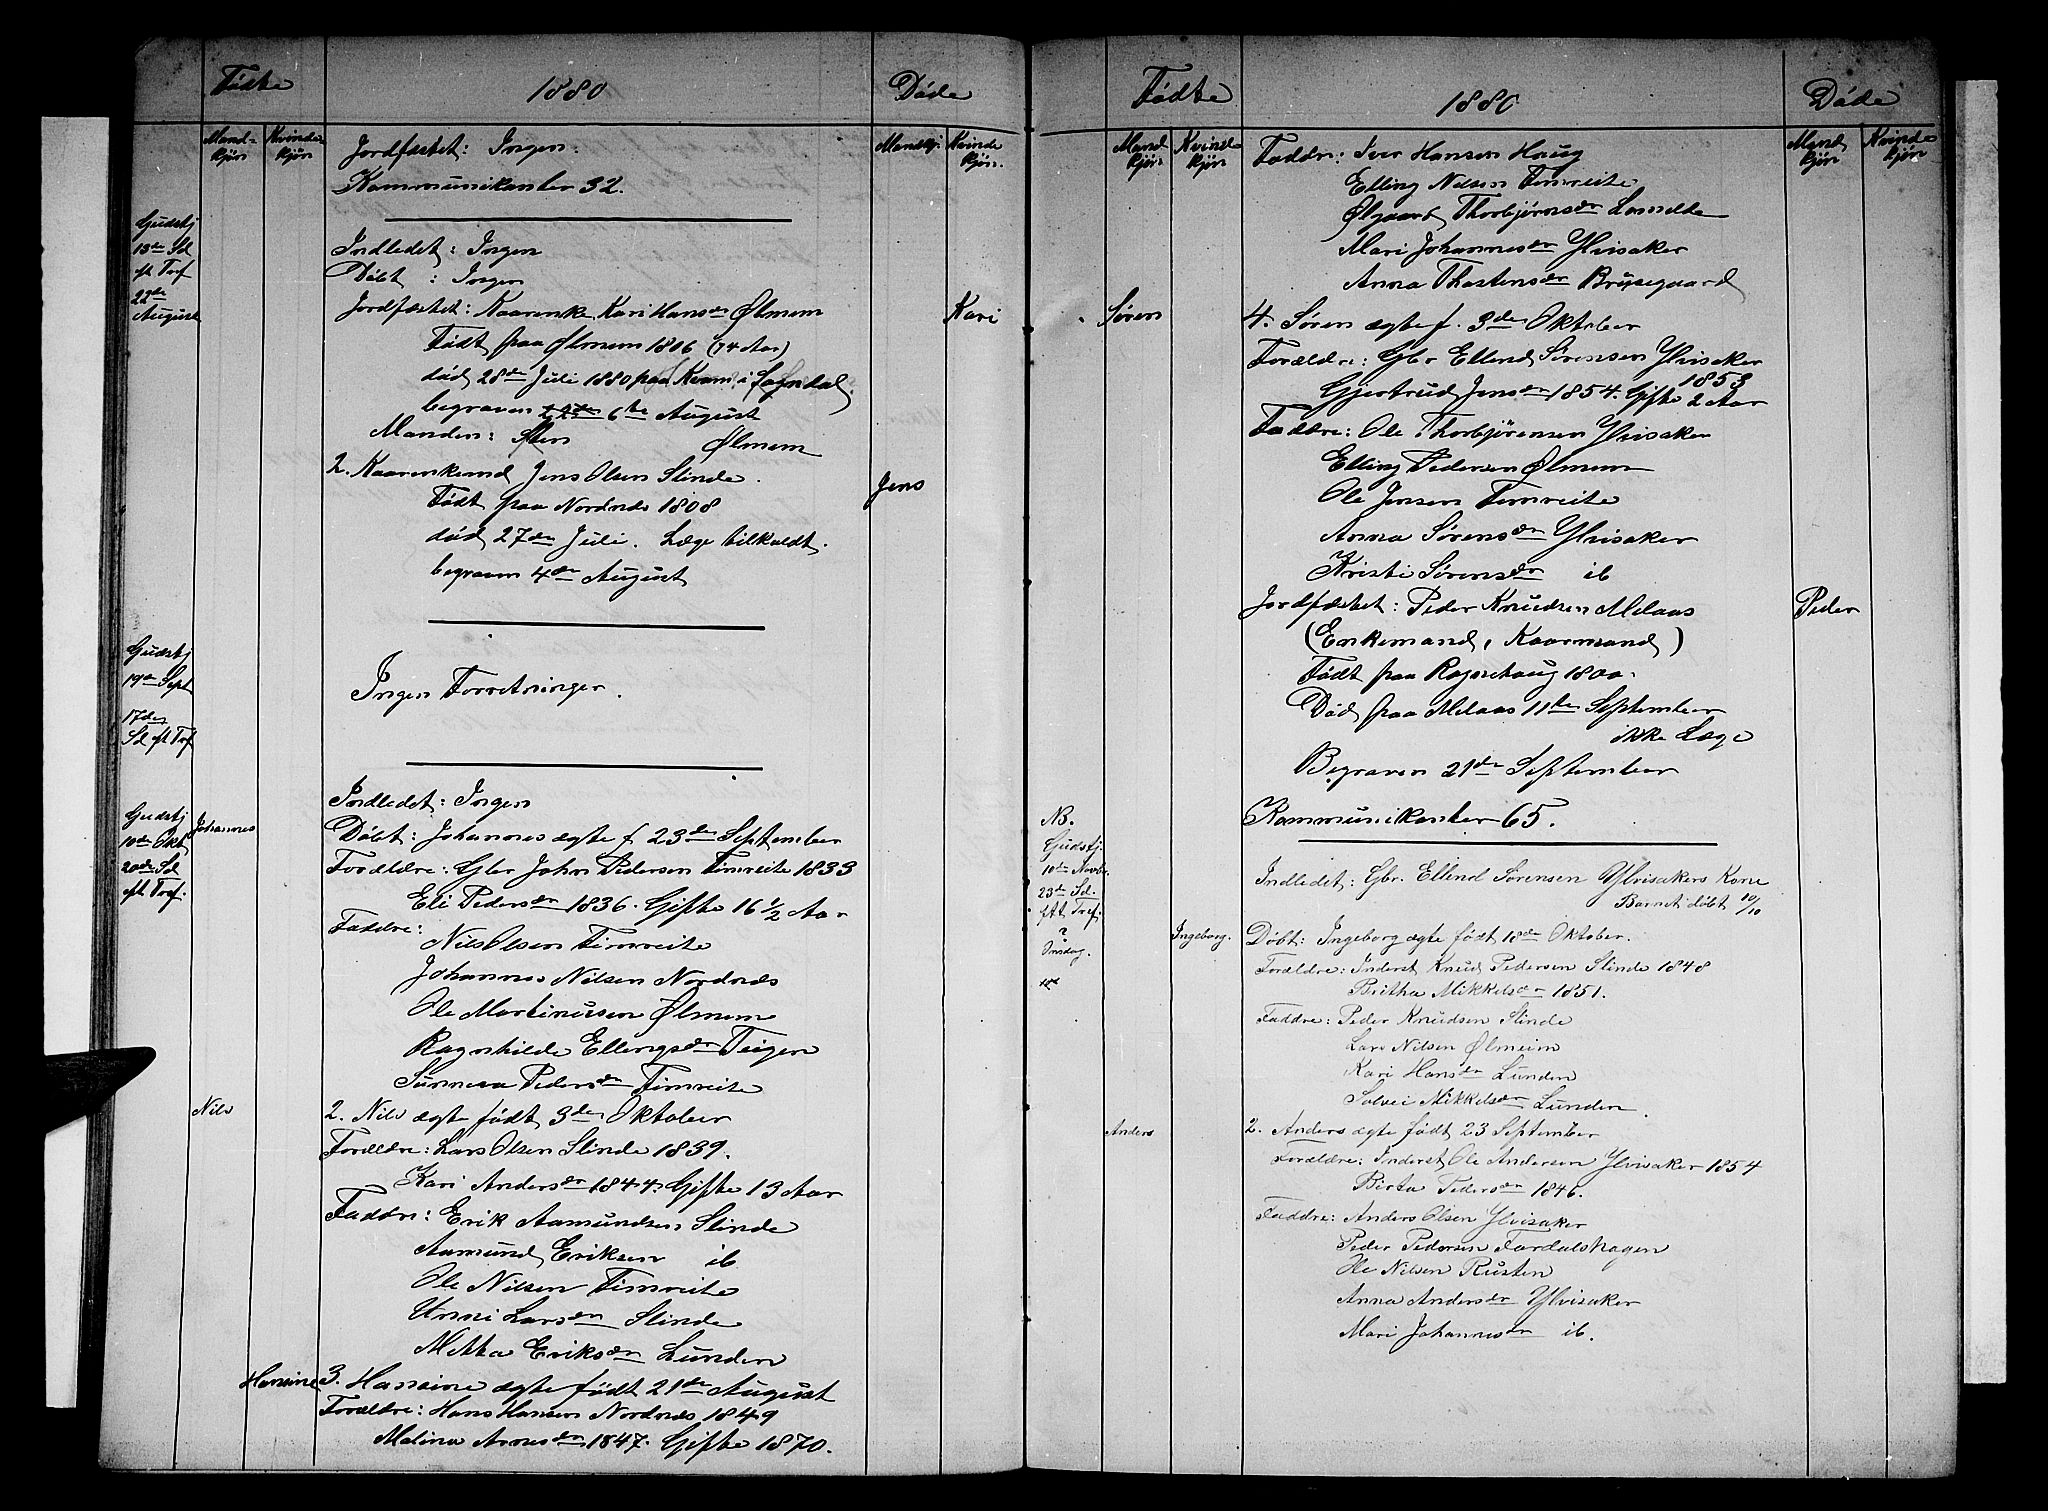 Fødte
1880
Døde
Mand-
kjön
Kvinde-
kjön
Mandkj.
Kvinde
kjön.
Jordfæstet: Ingen.
Kommunikanter 32.
Gudstj
13de Sd
eft Tref
22de
August
Indledet: Ingen
Døbt : Ingen
Jordfæstet: Kaarenke Kari Hansdr Ølmem
Kari
Født paa Ølmem 1806 (74 Aar)
død 28de Juli 1880 paa Kvam i Sogndal.
begraven 6te August
Manden: Sten Ølmem
2. Kaarenkemd Jens Olsen Slinde.
Jens
Født paa Nordnæs 1808
død 27de Juli. Læge tilkaldt.
begraven 4de August
Gudstj
19de Sept
17de
Sd eft Tref
Ingen Forretninger.
Gudstj
10de Okt
20de Sd
eft Tref.
Indledet: Ingen
Johannes
Døbt: Johannes ægte f 23de September
Forældre: Gbr John Pedersen Timreite 1833
Eli Pedersdr 1836. Gifte 16 1/2 Aar
Faddre:
Nils Olsen Timreite
Johannes Nilsen Nordnæs
Ole Martinusen Ølmem
Ragnhilde Ellingsdr Teigen
Sunneva Pedersdr Timreite
Nils
2. Nils ægte født 3de Oktober
Forældre: Lars Olsen Slinde 1839.
Kari Andersdr 1844. Gifte 13 Aar
Faddre: Erik Aamundsen Slinde
Aamund Eriksen ib
Ole Nilsen Timreite
Unni Larsdr Slinde
Metta Eriksdr Lunden
Hansine
3. Hansine ægte født 21de August
Forældre: Hans Hansen Nordnæs 1849
Malina Arnesdr 1847. Gifte 1870.
Fødte
1880
Døde
Mand
kjön
Kvinde
kjön
Mand
kjön
Kvinde
kjön
Faddre: Iver Hansen Haug
Elling Nilsen Timreite
Ølgaard Thorbjørnsdr Lomelde
Mari Johannesdr Ylvisaker
Anna Thostensdr Brysegaard
Søren
4. Søren ægte f. 3de Oktober
Forældre: Gbr Ellend Sørensen Ylvisaker
1853
Gjertrud Jensdr 1854. Gifte 2 Aar
Faddre: Ole Thorbjørensen Ylvisaker
Elling Pedersen Ølmem
Ole Jensen Timreite
Anna Sørensdr Ylvisaker
Kristi Sørensdr ib
Jordfæstet: Peder Knudsen Melaas
Peder
(Enkemand, Kaarmand)
Født paa Ragnehaug 1800.
Død paa Melaas 11te September
ikke Læge
Begraven 21de September
Kommunikanter 65.
NB.
Gudstj.
10de Novbr.
23de Sd.
eft Tref.
?
Onsdag.
Indledet: Gbr. Ellend Sørensen Ylvisakers Kone
Barnet døbt 10/10
Ingeborg.
Døbt: Ingeborg ægte født 18de Oktober.
Forældre: Inderst Knud Pedersen Slinde 1848
Britha Mikkelsdr 1851.
Faddre: Peder Knudsen Slinde
Lars Nilsen Ølmeim
Kari Hansdr Lunden
Solvei Mikkelsdr Lunden.
Anders
2. Anders ægte født 23 September
Forældre: Inderst Ole Andersen Ylvisaker 1854
Birta Pedersdr 1846.
Faddre: Anders Olsen Ylvisaker
Peder Pedersen Fardalshagen
Ole Nilsen Rusten
Anna Andersdr Ylvisaker
Mari Johannesdr ib.